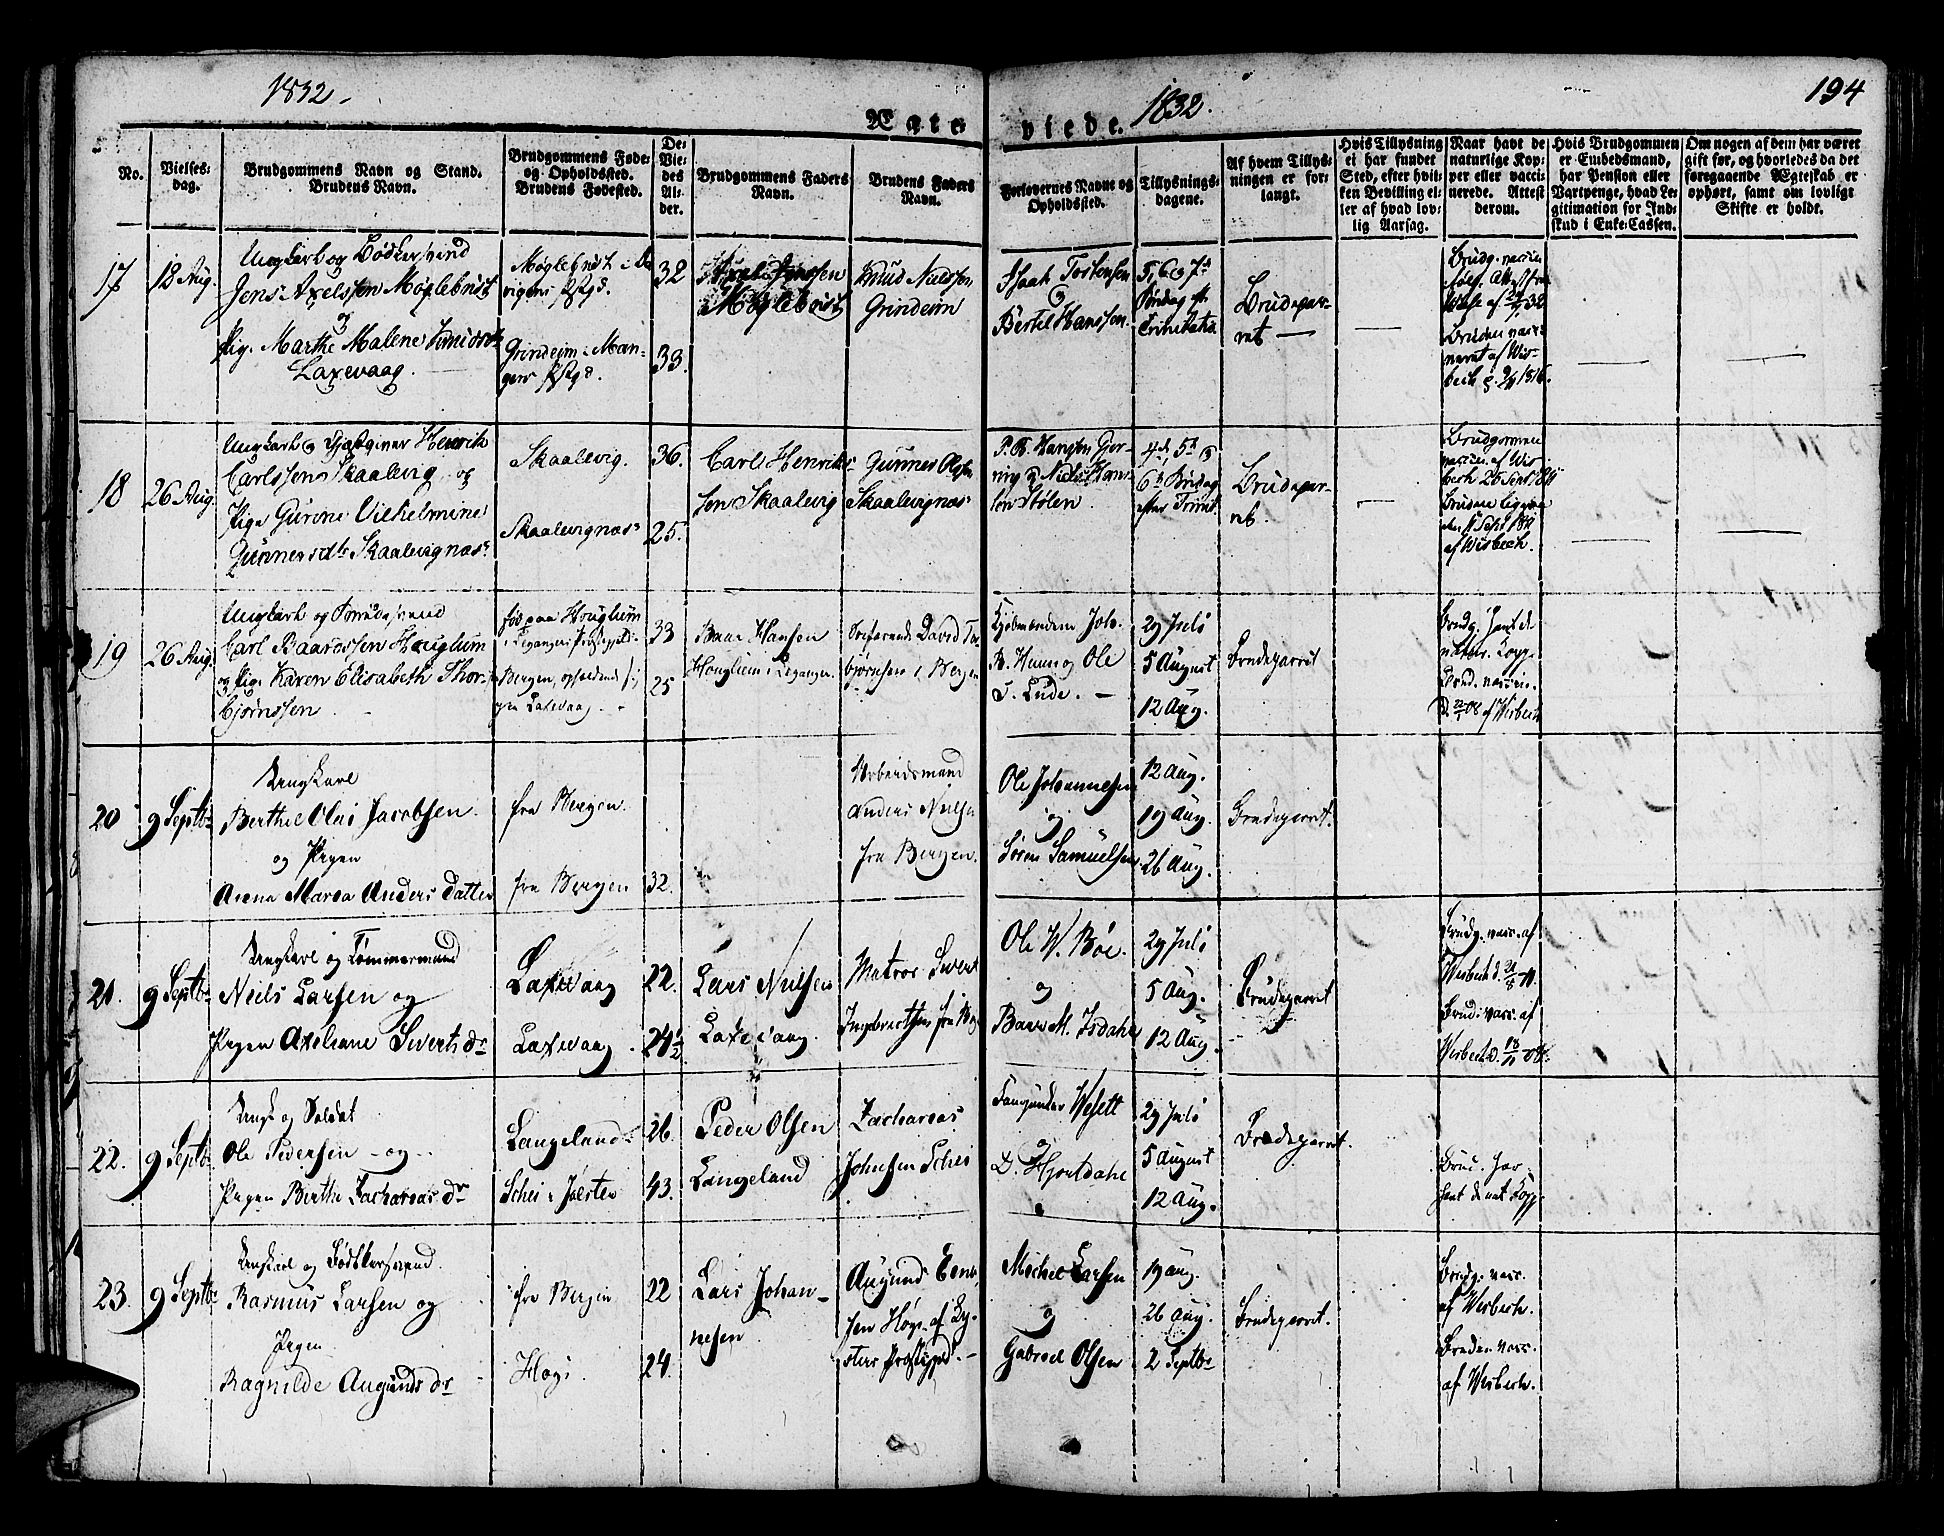 1832.
Ægte
viede.
1832.
194
No.
Vielses-
dag.
Brudgommens Navn og Stand.
Brudens Navn.
Brudgommens Føde-
og Opholdssted.
Brudens Fødested.
De
Vie-
des
Al-
der.
Brudgommens Faders
Navn.
Brudens Faders
Navn.
Forlovernes Navne og
Opholdssted.
Tillysnings-
dagene.
Af hvem Tillys-
ningen er for-
langt.
Hvis Tillysning
ei har fundet
Sted, efter hvil-
ken Bevilling el-
ler af hvad lov-
lig Aarsag.
Naar havt de
naturlige Kop-
per eller vacci-
nerede. Attest
derom.
Hvis Brudgommen
er Embedsmand,
har Pension eller
Vartpenge, hvad Le-
gitimation for Ind-
skud i Enke-Cassen.
Om nogen af dem har været
gift før, og hvorledes da det
foregaaende Ægteskab er
ophørt, samt om lovligt
Skifte er holdt.
17
18 Aug.
Ungkarl og Bødkersvend
Jens Axelssen Møglebust
og
Pig. Marthe Malene Knudsdr
Laxevaag.
Møglebust i
Grindeim i Man-
gers Pstgd.
32
33.
Axel Jenssen
Møglebust
Knud Nielssen
Grindeim
Isaak Tostensen
og
Bertel Hanssen.
5, 6 og 7de
Søndag eft.
Trinitatis
Brudepar-
ret —
18
26 Aug.
Ungkarl og Gjæstgiver Henrik
Carlssen Skaalevig og
Pige Gurine Vilhelmine
Gunnersdtr Skaalevignæs
Skaalevig.
Skaalevignæs
36.
25.
Carl Henriks-
sen Skaalevig
Gunner Olsen
Skaalevignæs
Niels Han-
sen Stølen.
4de, 5te og
6te Søndag
efter Trinit.
Brudepar-
ret.
Brudgommen
vaccin. af Wis-
bech 26 Sept. 1811
Bruden ligesaa
af Wisbech.
19
26 Aug.
Ungkarl og
Carl Baardssen Houglum
og Pig. Karen Elisabeth Thor-
bjørnssen
født paa Houglum
i Leganger Præstegjeld
Bergen, opholdende sig
paa Laxevaag
33
25
Baar Hansen
Houglum i Leganger.
David Tor-
bjørnsen i Bergen
Kjøbmændene Joh.
B. Hunn og Ole
T. Lude. —
29 Juli
5 August
12 Aug.
Brudeparret
Brudg. havt de
natur. Kopp.
Brud. vaccin.
af Wisbech
20
9 Septbr
Ungkarl
Berthel Olai Jacobsen.
og Pigen
Anna Maria Anders datter
fra Bergen.
fra Bergen
32.
Arbeidsmand
Anders Nielsen
fra Bergen.
Ole Johannesen
og
Søren Samuelsen
12 Aug.
19 Aug.
26 Aug.
Brudeparret.
21.
9 Septbr
Ungkarl og Tømmermand
Niels Larsen og
Pigen Axeliane Siverts dr
Laxevaag
Laxevaag.
22.
24½
Lars Nielsen
Laxevaag.
Matros Sivert
Ingebrectsen fra Berg
Ole W. Bøe.
og
Baar M. Isdahl
29 Juli
5 Aug.
12 Aug.
Brudeparret
Brudg. vacc. af
Wisbech d.
Brud. vacc. af
Wisbech d.
22.
9 Septbr
Ungk. og Soldat
Ole Pedersen - og -
Pigen Berthe Zacharias dr
Langeland
Schei i Jølster
26.
43.
Peder Olsen
Langeland
Zacharias
Johnsen Schei
Wesett
D. Hjortdahl
29 Juli
5 August
12 Aug.
Brudeparret.
Brud. har
havt d. nat. Kopp.
23.
9 Septbr
Ungkarl og Bødkersvend.
Rasmus Larsen og
Pigen
Ragnilde Augunds dr
fra Bergen
Høgi.
22
24.
Lars Johan-
nesen
Augund
sen Høgi af Ly-
sters Præstegjeld. -
Michel Larsen
og
Gabriel Olsen
19 Aug.
26 Aug.
2 Septbr
Brudeparret.
Brudg. vacc.
af Wisbech.
Bruden vacc.
af Wisbech.